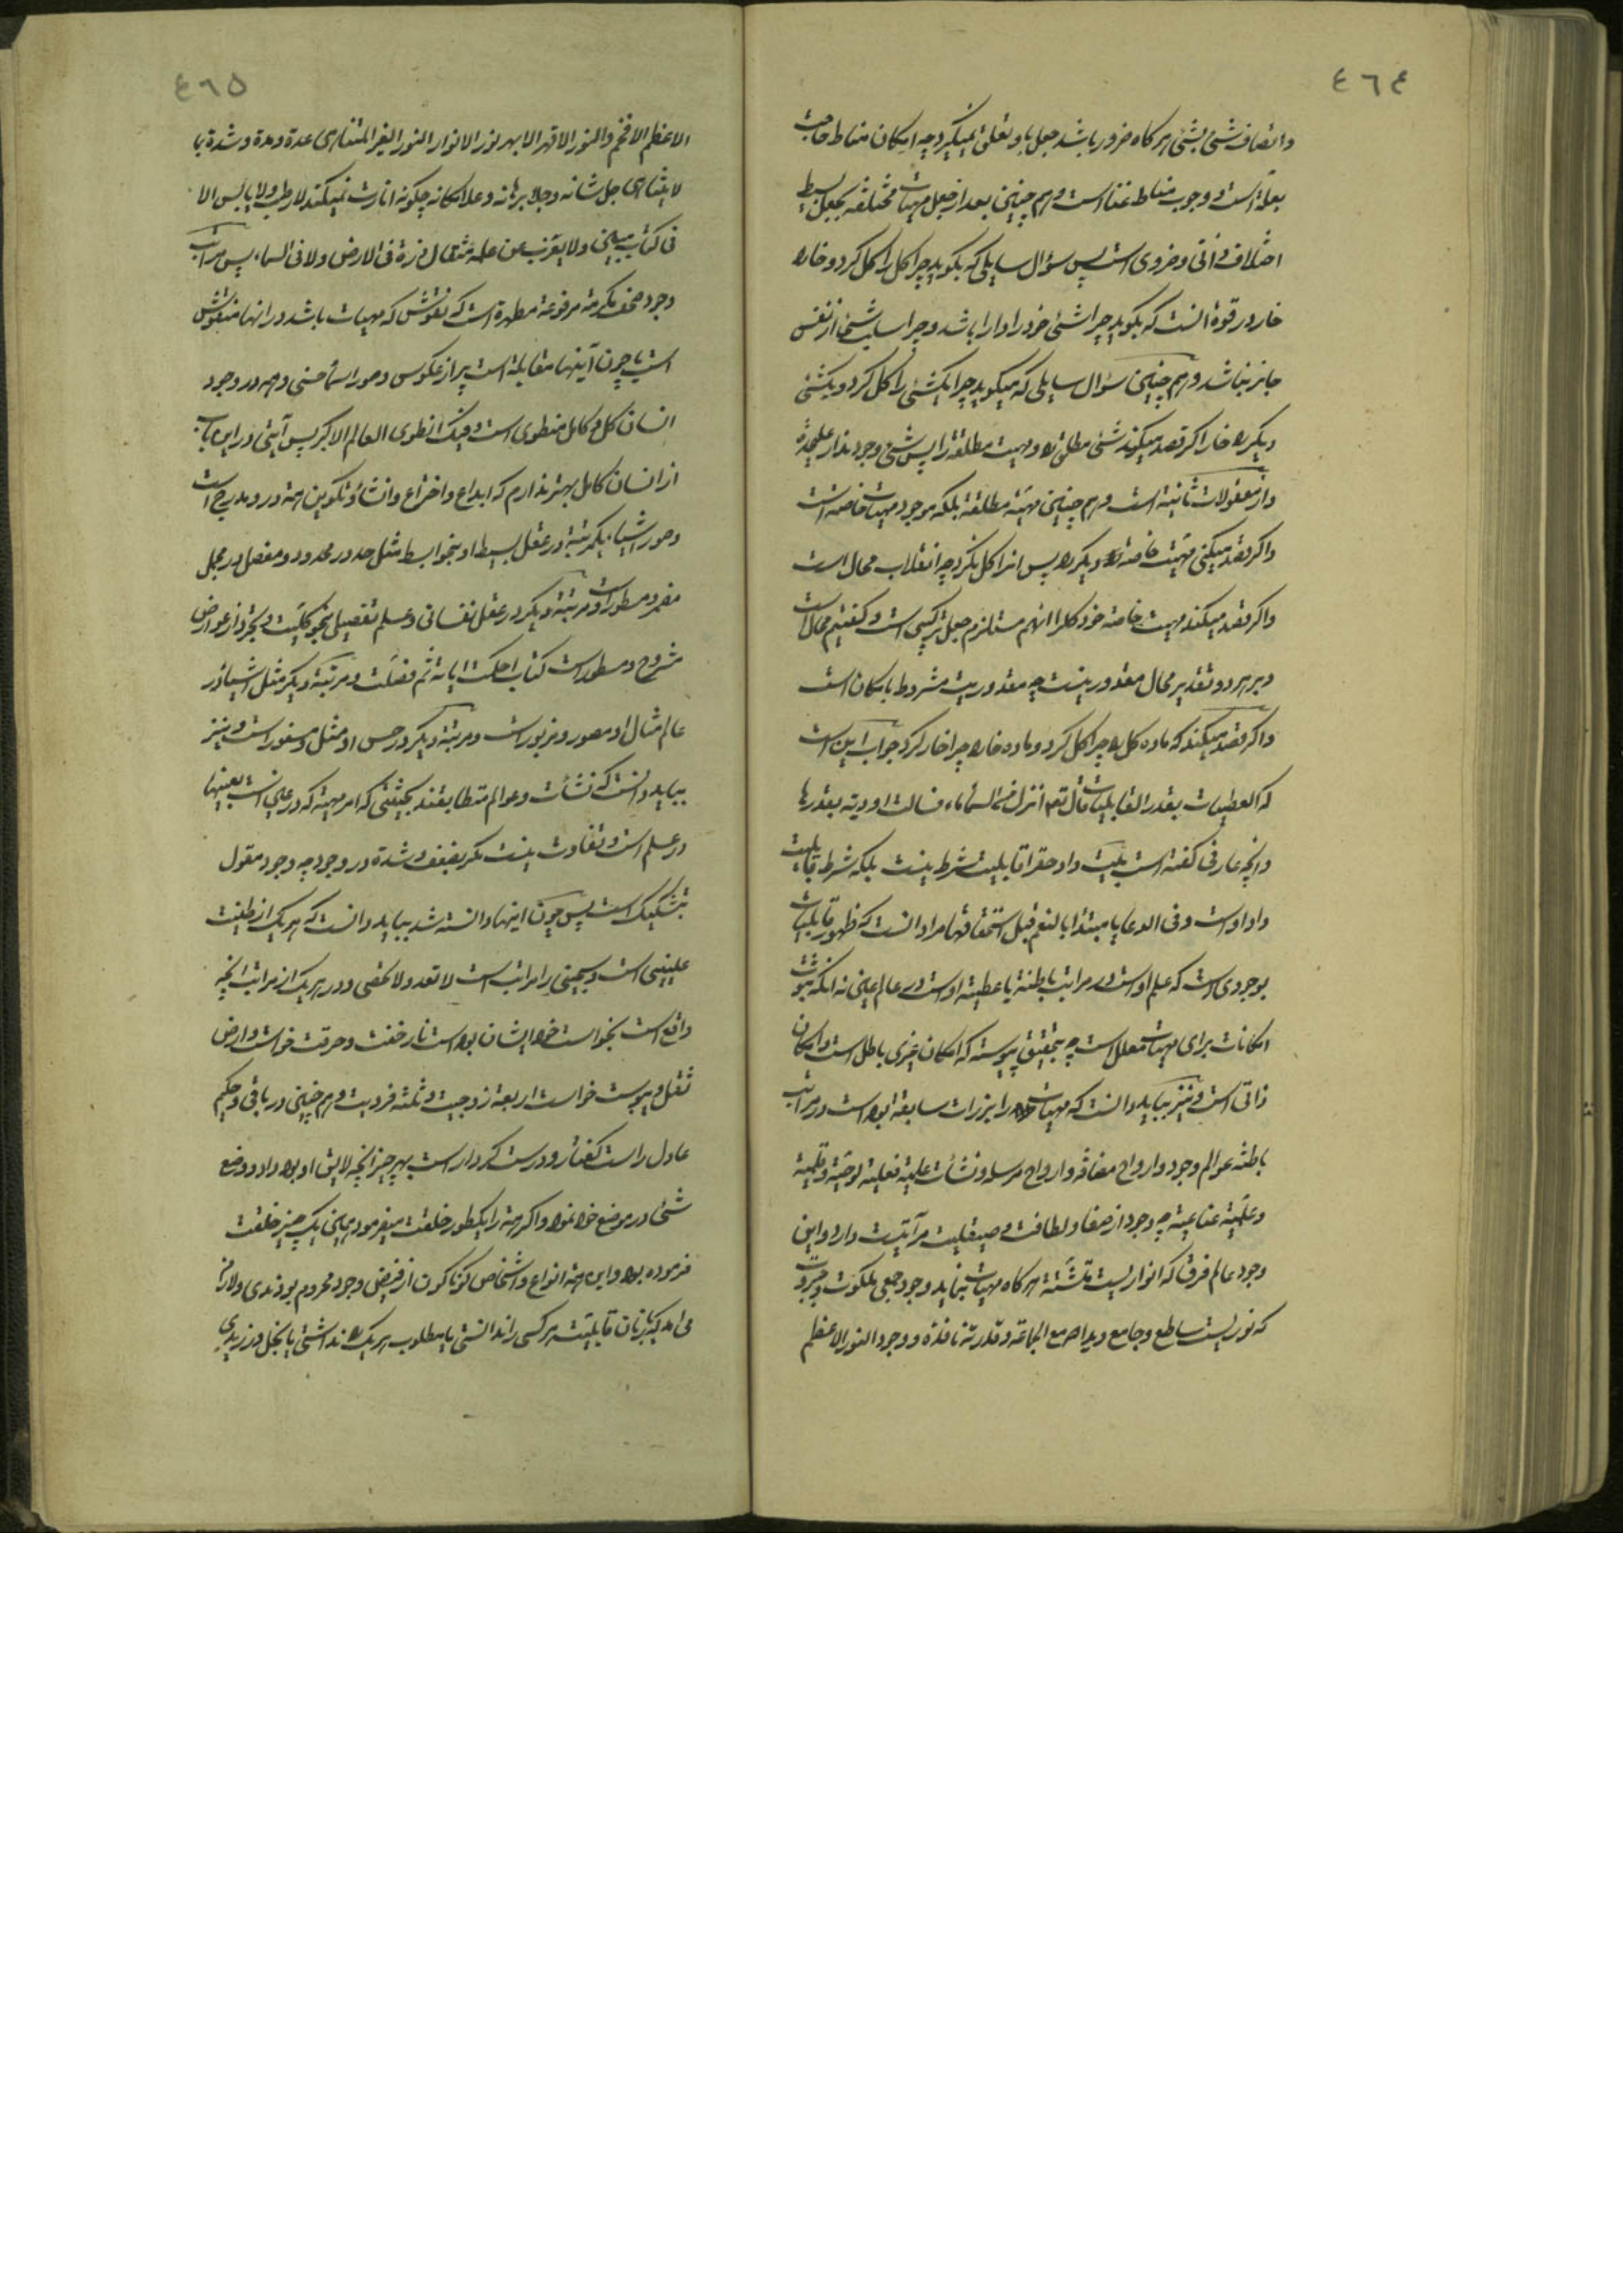 ٤٦٤
و اتصاف شئ بشئ هر گاه ضرور باشد جعل باو تعلق نمیگیرد چه امکان مناط حاجت
بعلة است و وجوب مناط غنا است و هم چنین بعد از جعل مهیات مختلفه بجعل بسیط
اختلاف ذاتی و ضروری است پس سؤال سایلی که بگوید چرا گل را گل کرد و خار را
خار در قوه آنست که بگوید چرا شئ خود را دارا باشد و چرا سلب شئ از نفس
جایز نباشد و هم چنین سؤال سایلی که میگوید چرا یکشئ را گل کرد و یکشئ
دیگر را خار اگر قصد میکند شئ مطلق را و مهیت مطلقه را پس شئ وجود ندارد علیحده
و از معقولات ثانیه است و هم چنین مهیة مطلقه بلکه موجود مهیات خاصه است
و اگر قصد میکنی مهیت خاصه دیگر را پس انرا گل نکرد چه انقلاب محال است
و اگر قصد میکند مهیت خاصه خود گل را انهم مستلزم جعل ترکیبی است و گفتیم محال است
و بر هر دو تقدیر محال مقدور نیست چه مقدوریت مشروط بامکان است
و اگر قصد میکند که ماده گل را چرا گل کرد و ماده خار را چرا خار کرد جواب این است
که العطیات بقدر القابلیات قال تعم انزل من السماء ماء فسالت اودیة بقدرها
و انچه عارفی گفته است بلیت داد حق را قابلیت شرط نیست بلکه شرط قابلیت
داد اوست و فی الدعا یا مبتدا بالنعم قبل استحقاقها مراد انست که ظهور قابلیات
بوجودی است که علم اوست در مراتب باطنة یا عطیه اوست در عالم عینی نه انکه ثبوت
امکانات برای مهیات معلل است چه بتحقیق پیوسته که امکان غیری باطل است و امکان
ذاتی است و نیز بباید دانست که مهیات را برزات سابقه بوده است در مراتب
باطنه عوالم وجود و ارواح مضافه و ارواح مرسله و نشأت علمیة فعلیه لوحیة و قلمیة
و علمیة عنائیة چه وجود از صفا و لطافت و صیقلیت مرآتیت دارد و این
وجود عالم فرق که انواریست متشتتة هر گاه مهیات بنماید وجود جمعی ملکوت و جبروت
که نوریست ساطع و جامع و ید الله مع الجماعة و قدرته نافذة و وجود النور الاعظم
٤٦٥
الاعظم الافخم و النور الاقهر الابهر نور الانوار النور الغیر المتناهی عدة و مدة و شدة بما
لا یتناهی جل شانه و جل برهانه و علا مکانه چگونه انارت نمیکند لا رطب و لا یابس الا
فی کتاب مبین و لا یعزب عن علمه مثقال ذرة فی الارض و لا فی السماء پس مراتب
وجود صحف مکرمة مرفوعة مطهرة است که نقوش که مهیات باشد در انها منقوش
است یا چون آینها مقابلة است پر از عکوس و صور اسماء حسنی و همه در وجود
انسان کل و کامل منطوی است و فیک انطوی العالم الاکبر پس آیتی در این باب
از انسان کامل بهتر ندارم که ابداع و اختراع و انشاء و تکوین همه در و مدرج است
و صور اشیاء بیکمرتبه در عقل بسیط او بنحو ابسط مثل حد در محدود و مفصل در مجمل
مضمر و مسطور است و مرتبة دیگر در عقل نفسانی و علم تفصیلی بنحو کلیت و تجرد از عوارض
مشروح و مسطور است کتاب احکمت ایاته ثم فصلت و مرتبة دیگر مثل اشیا در
عالم مثال او مصور و مزبور است و مرتبة دیگر در حس او ممثل و مسفور است و نیز
بباید دانست که نشأت و عوالم متطابقند بحیثیتی که هر مهیة که در عین است بعینها
در علم است و تفاوت نیست مگر بضعف و شدة در وجود چه وجود مقول
بتشکیک است پس چون اینها دانسته شد بباید دانست که هر یک از طینت
علیینی است و سجینی را مراتب است لا تعد و لا تحصی و در هر یک از مراتب انچه
واقع است بخواست خود ایشان بوده است نار خفت و حرقت خواست و ارض
ثقل و یبوست خواست اربعه زوجیت و ثلثه فردیت و هم چنین در باقی و حکیم
عادل راست گفتار و درست کردار است بهر چیز انچه لایق او بود داد و وضع
شئ در موضع خود نمود و اگر همه را یکطور خلقت میفرمود همین یک چیز خلقت
فرموده بود و این همه انواع و اشخاص گوناگون از فیض وجود محروم بودندی و لازم
می امد که زبان قابلیت هر کسی را ندانستی یا مطلوب هر یک را نداشتی یا بخل ورزیدی